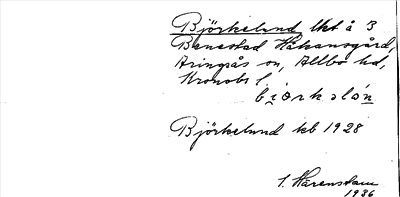 Björkelund lht å 3
Banestad Håkansgård,
Aringsås sn, Allbo hd,
Kronobs l.
Björkelund kb 1928
S. Härenstam
1936